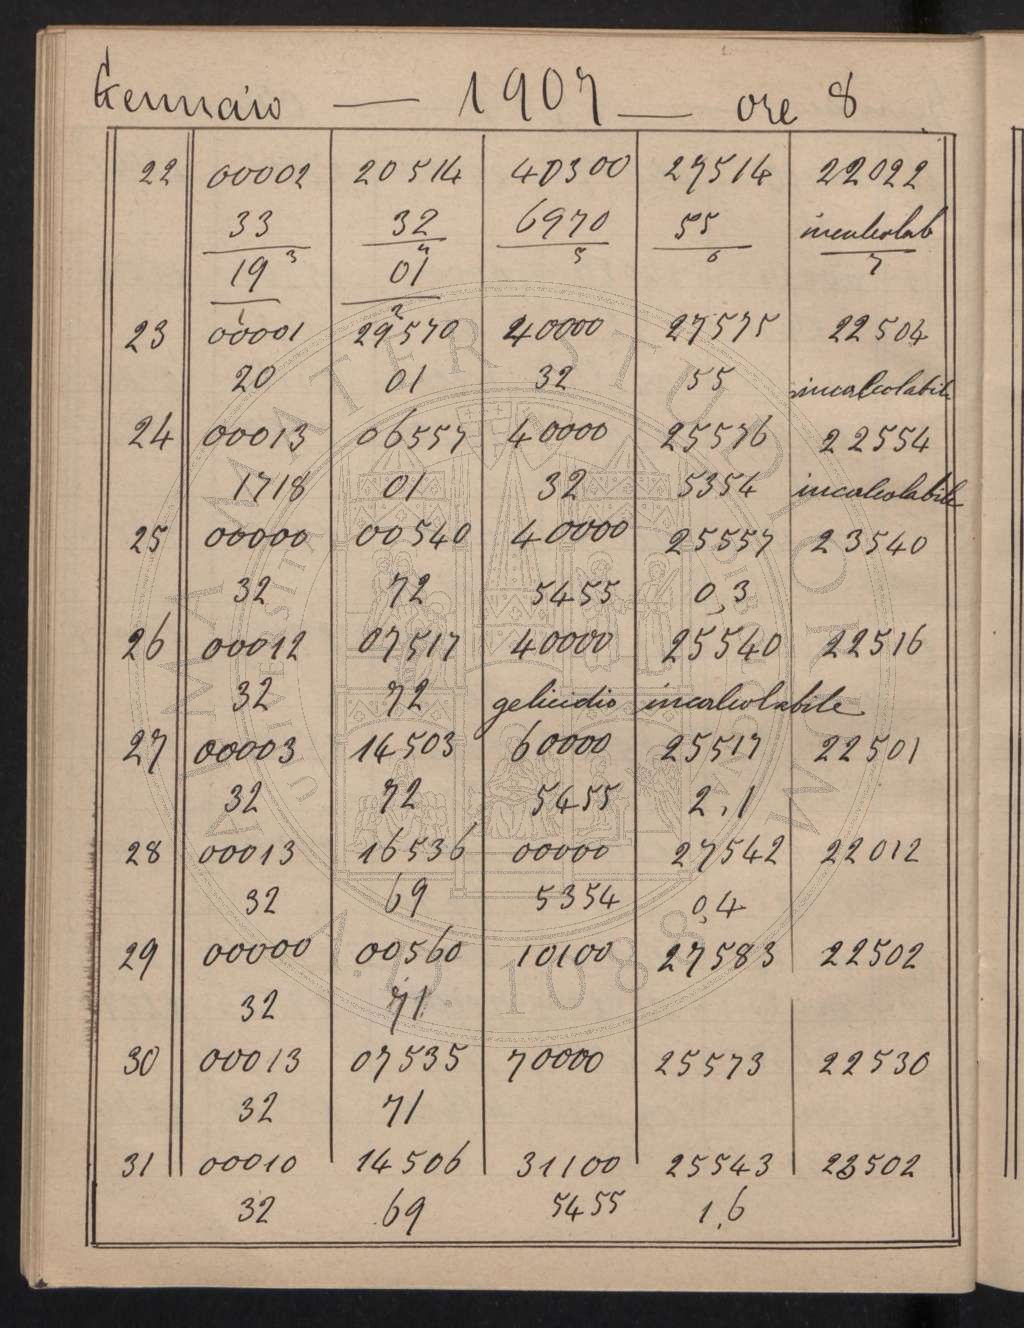 Gennaio — 1907 — ore 8
22 00002 20514 40300 27514 22022
33 32 6970 55 incalcolab
3 4 5 6 7
19 01
1 2
23 00001 29570 40000 27575 22504
20 01 32 55 incalcolabile
24 00013 06557 40000 25576 22554
1718 01 32 5354 incalcolabile
25 00000 00540 40000 25557 23540
32 72 5455 0,3
26 00012 07517 40000 25540 22516
32 72 gelicidio incalcolabile
27 00003 14503 60000 25517 22501
32 72 5455 2,1
28 00013 16536 00000 27542 22012
32 69 5354 0,4
29 00000 00560 10100 27583 22502
32 71
30 00013 07535 70000 25573 22530
32 71
31 00010 14506 31100 25543 22502
32 69 5455 1,6
ALMA MATER STUDIORUM
A.D. 1088